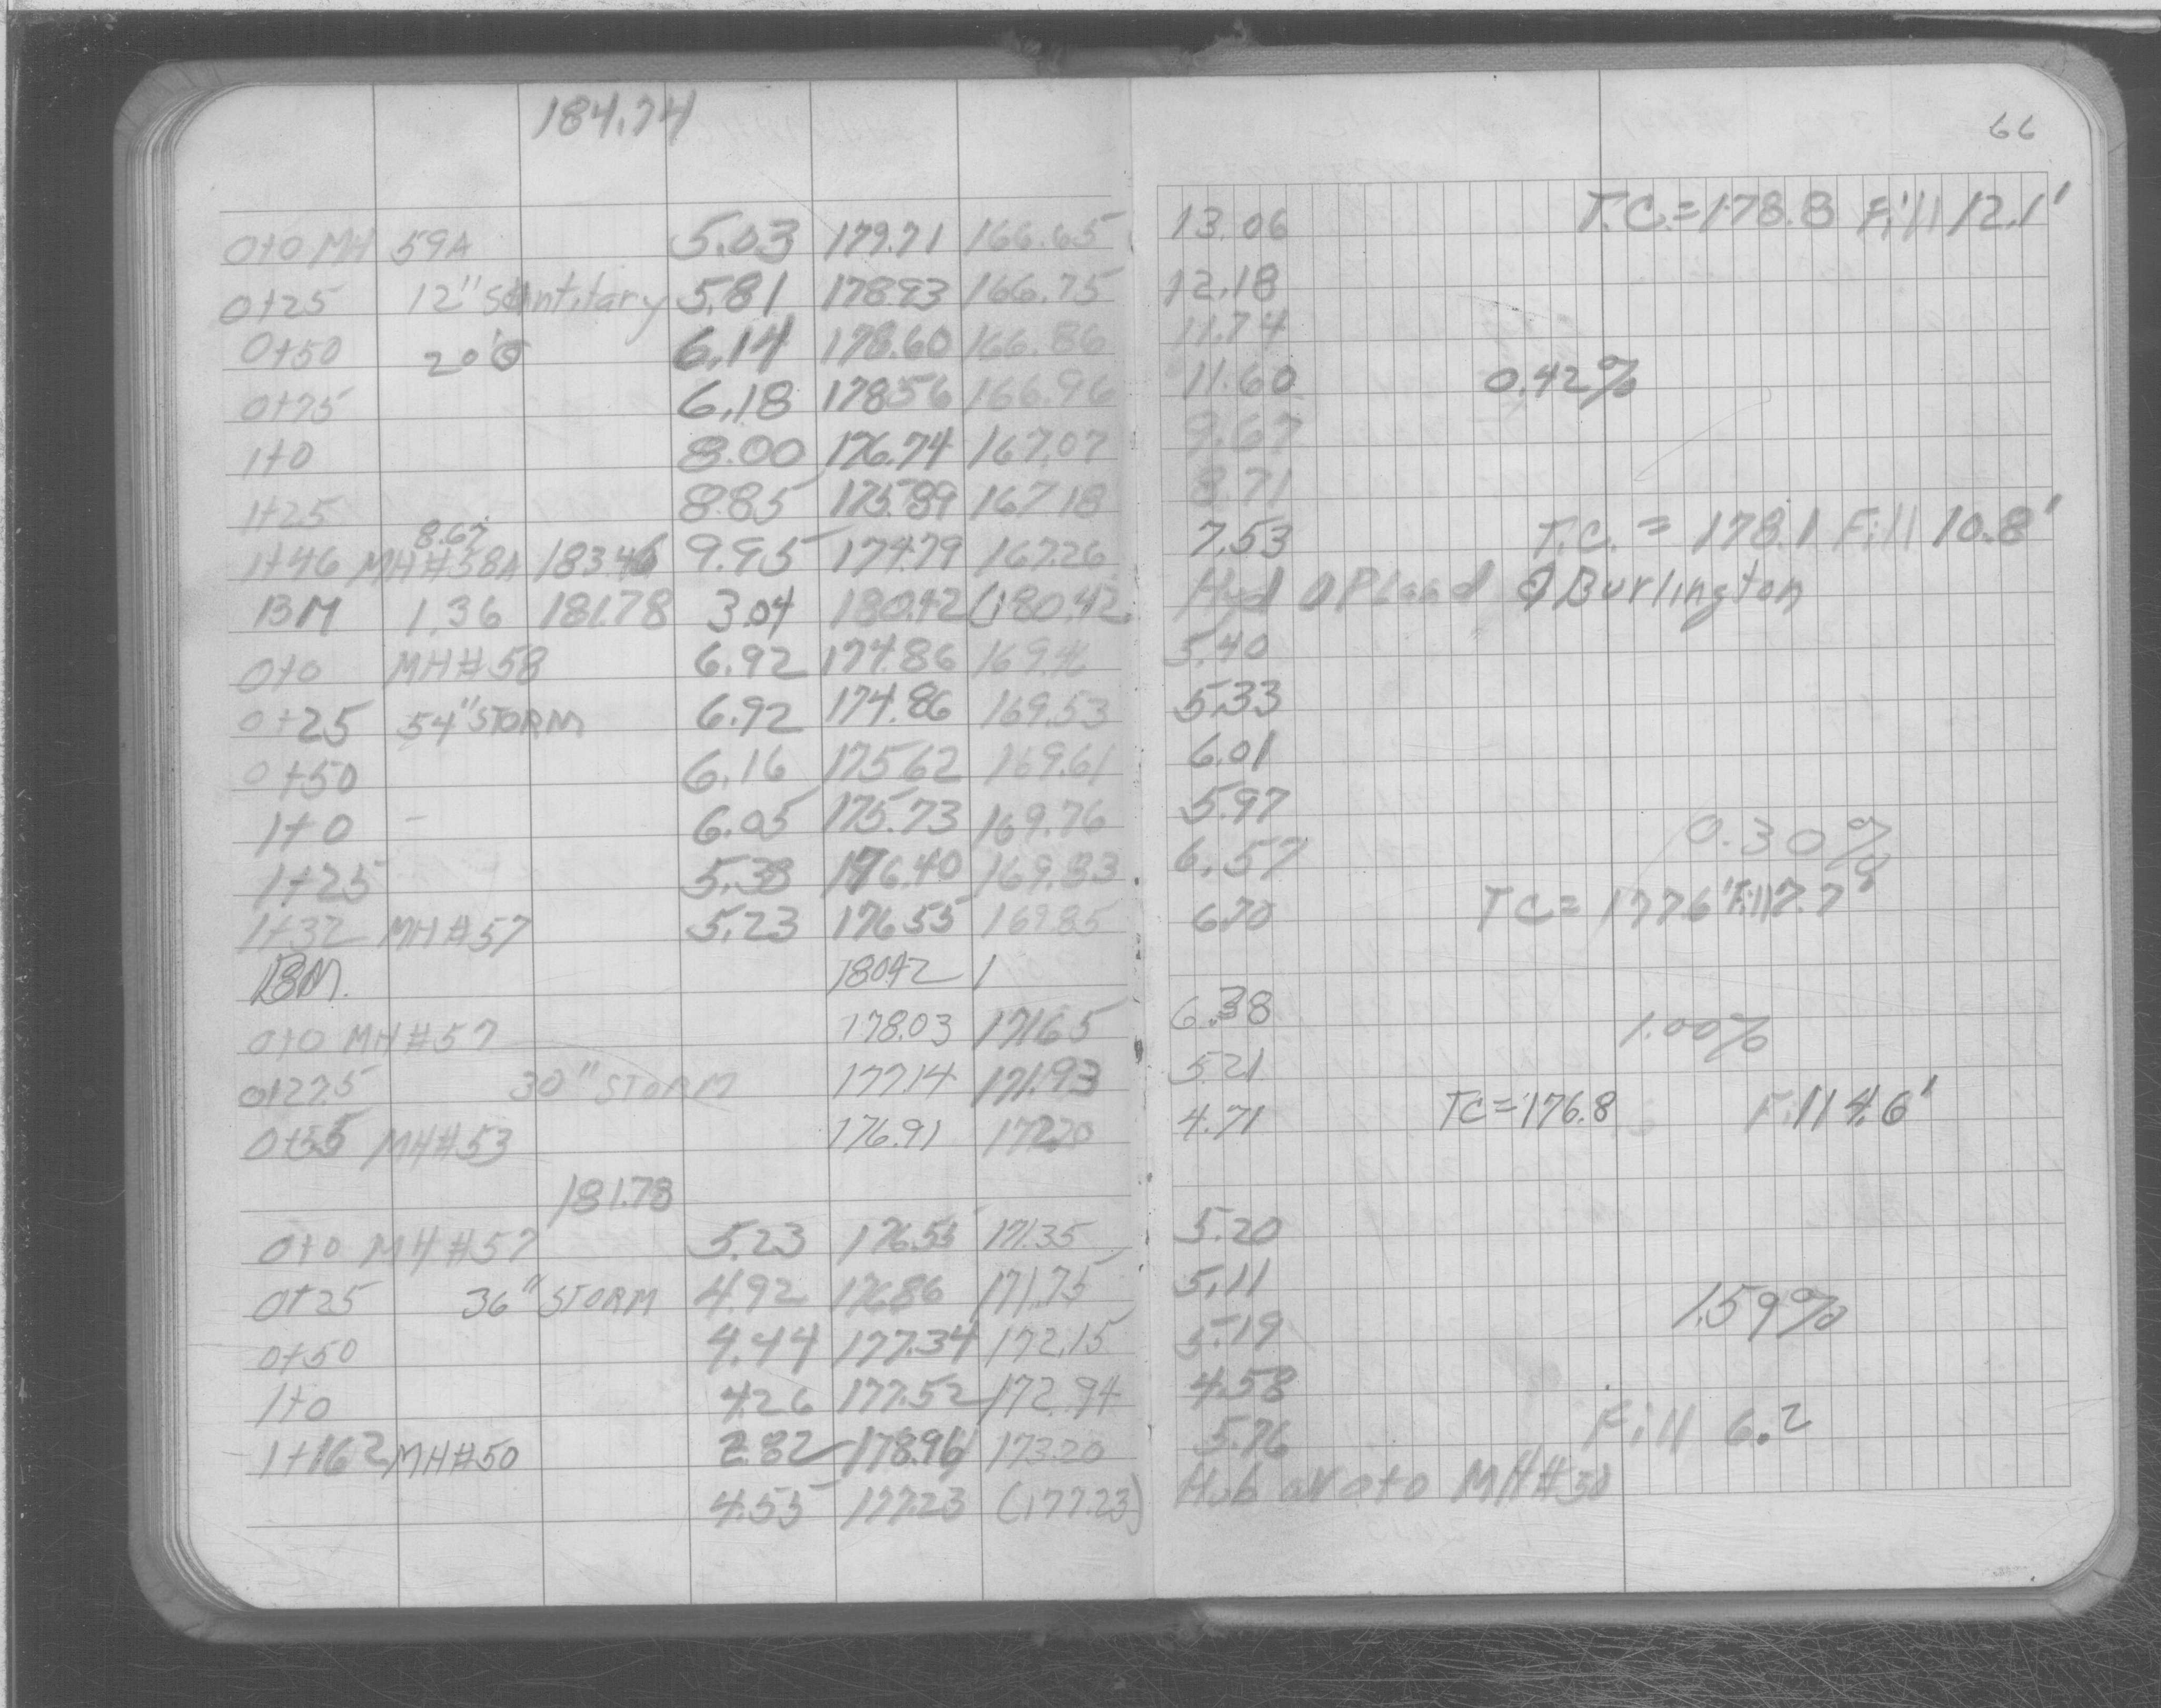 184.74
66
0+0 MH 59A 5.03 179.71 166.65 13.06 T.C.=178.8 Fill 12.1'
0+25 12" Santitary 5.81 178.93 166.75 12.18
0+50 6.14 178.60 166.86 11.74
0+75 6.18 178.56 166.96 11.60 0.42%
1+0 8.00 176.74 167.07 9.67
1+25 8.85 175.89 167.18 8.71
8.67
1+46 MH#58A 183.46 9.95 174.79 167.26 7.53 T.C. = 178.1 Fill 10.8'
BM 1.36 181.78 3.04 180.42 (180.42 Hyd Burlington
0+0 MH#58 6.92 174.86 169.46 5.40
0+25 54" STORM 6.92 174.86 169.53 5.33
0+50 6.16 175.62 169.61 6.01
1+0 - 6.05 175.73 169.76 5.97
1+25 5.38 176.40 169.83 6.57 0.30%
1+32 MH#57 5.23 176.55 169.85 6.70 TC= 177.6 Fill 7.7'
BM. 180.42
0+0 MH#57 178.03 171.65 6.38 1.00%
0+27.5 30" STORM 177.14 171.93 5.21
0+55 MH#53 176.91 172.20 4.71 TC=176.8 Fill 4.6'
181.78
0+0 MH#57 5.23 176.55 171.35 5.20
0+25 36" STORM 4.92 176.86 171.75 5.11 1.59%
0+50 4.44 177.34 172.15 5.19
1+0 4.26 177.52 172.94 4.58
1+16² MH#50 2.82 178.96 173.20 5.76 Fill 6.2
4.55 177.23 (177.23) Hub at 0+0